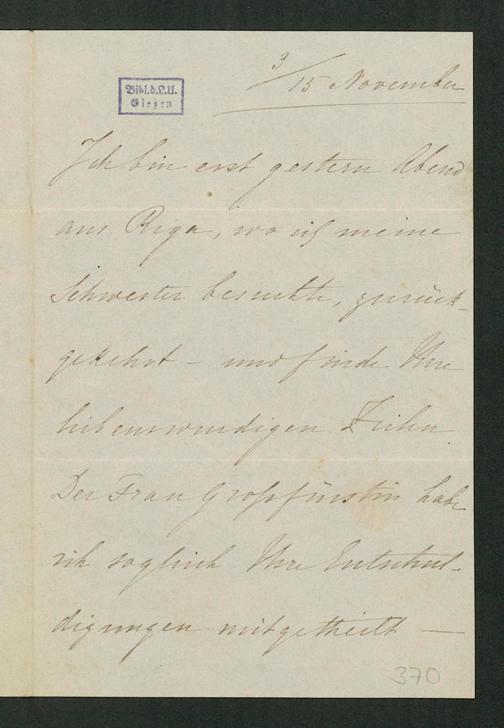 3/15 November
Bibl.d.L.U.
Giezen
Ich bin erst gestern Abend
aus Riga, wo ich meine
Schwester besuchte, zurück-
gekehrt – und finde Ihre
liebenswürdigen Zeilen.
Der Frau Großfürstin habe
ich sogleich Ihre Entschul-
digungen mitgetheilt —
370